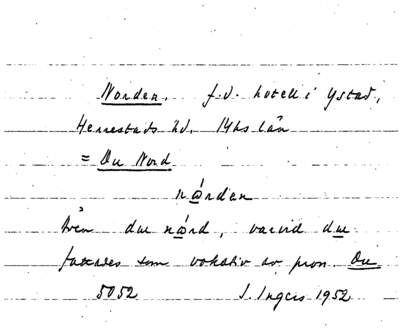 Norden, f.d. hotell i Ystad,
Herrestads hd. Mhs län
= Du Nord
nǻrdan
Även du nǻrd, varvid du
fattades som vokativ av pron. Du
5052 J. Ingers 1952